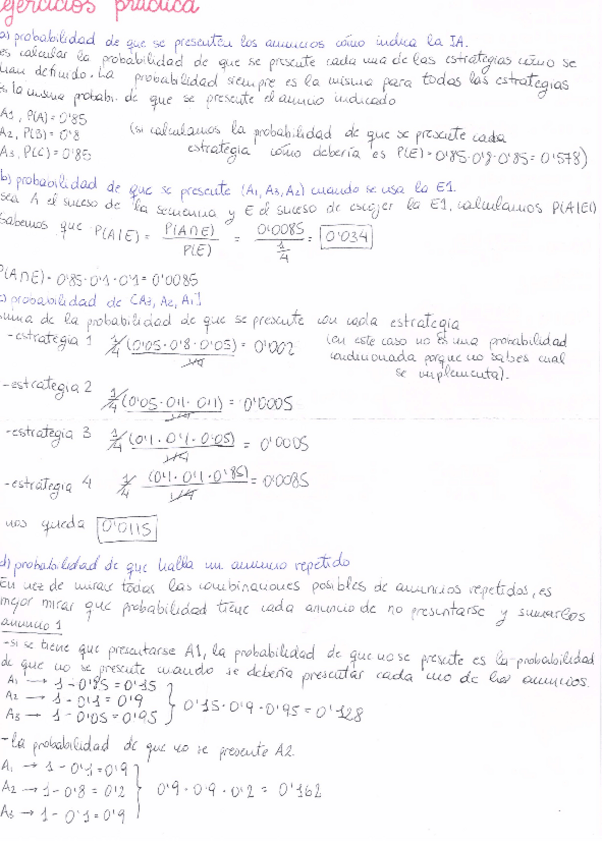 ejercicios práctica
a) probabilidad de que se presenten los anuncios cómo indica la IA.
es calcular la probabilidad de que se presente cada una de las estrategias cómo se
han definido. La probabilidad siempre es la misma para todas las estrategias
si la misma probabi. de que se presente el anuncio indicado
A1, P(A)= 0'85
A2, P(B)= 0'8
A3, P(C)= 0'85
(si calculamos la probabilidad de que se presente cada
estrategia cómo debería es P(E)= 0'85·0'8·0'85= 0'578)
b) probabilidad de que se presente (A1, A3, A2) cuando se usa la E1.
sea A el suceso de la secuencia y E el suceso de escojer la E1, calculamos P(A|E)
sabemos que P(A|E) = P(A∩E) / P(E) = 0'0085 / 1/4 = 0'034
P(A∩E) = 0'85·0'1·0'1 = 0'0085
c) probabilidad de [A3, A2, A1]
suma de la probabilidad de que se presente con cada estrategia
-estrategia 1 1/4 (0'05·0'8·0'05) / 1/4 = 0'002
(en este caso no es una probabilidad
condicionada porque no sabes cual
se implementa).
-estrategia 2 1/4 (0'05·0'1·0'1) / 1/4 = 0'0005
-estrategia 3 1/4 (0'1·0'1·0'05) / 1/4 = 0'0005
-estrategia 4 1/4 (0'1·0'1·0'85) / 1/4 = 0'0085
nos queda 0'0115
d) probabilidad de que halla un anuncio repetido
En vez de mirar todas las combinaciones posibles de anuncios repetidos, es
mejor mirar que probabilidad tiene cada anuncio de no presentarse y sumarlos
anuncio 1
-si se tiene que presentarse A1, la probabilidad de que no se presente es la probabilidad
de que no se presente cuando se debería presentar cada uno de los anuncios.
A1 → 1-0'85=0'15
A2 → 1-0'1=0'9
A3 → 1-0'05=0'95
0'15·0'9·0'95=0'128
-la probabilidad de que no se presente A2
A1 → 1-0'1=0'9
A2 → 1-0'8=0'2
A3 → 1-0'1=0'9
0'9·0'9·0'2 = 0'162